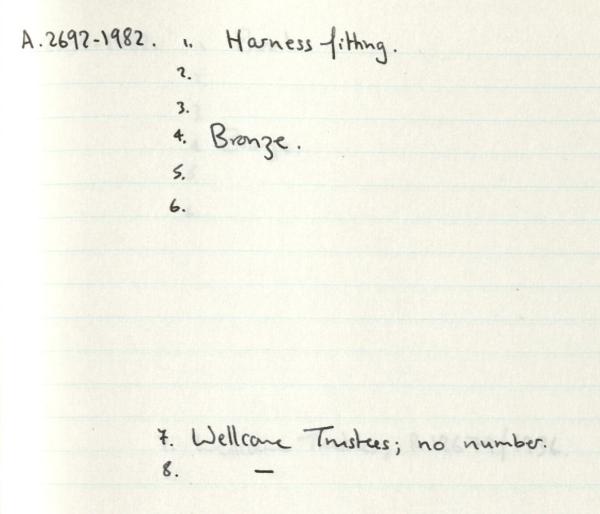 A.2692-1982. 1. Harness fitting.
2.
3.
4. Bronze.
5.
6.
7. Wellcome Trustees; no number.
8. —